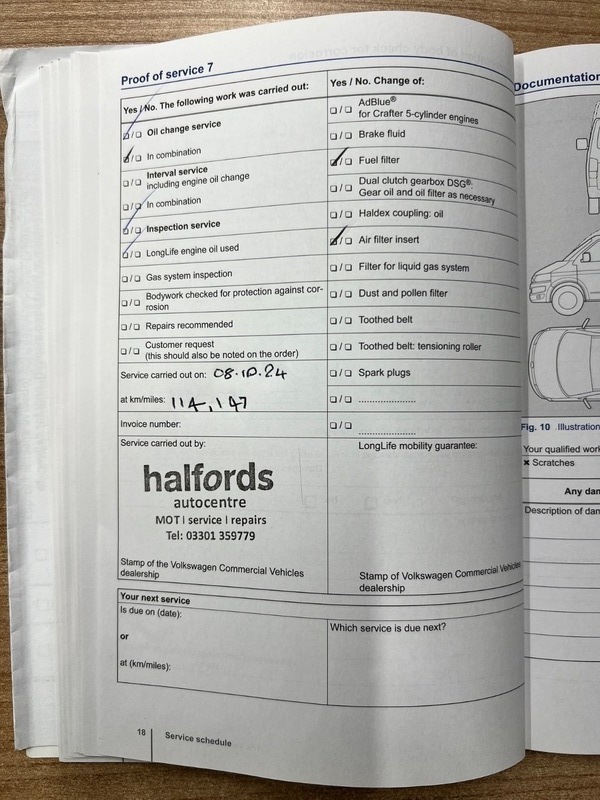 Proof of service 7
Yes / No. The following work was carried out:
❑ / ❑ Oil change service
❑ / ❑ In combination
❑ / ❑ Interval service
including engine oil change
❑ / ❑ In combination
❑ / ❑ Inspection service
❑ / ❑ LongLife engine oil used
❑ / ❑ Gas system inspection
❑ / ❑ Bodywork checked for protection against cor-
rosion
❑ / ❑ Repairs recommended
❑ / ❑ Customer request
(this should also be noted on the order)
Service carried out on: 08.10.24
at km/miles: 114,147
Invoice number:
Service carried out by:
halfords
autocentre
MOT I service I repairs
Tel: 03301 359779
Stamp of the Volkswagen Commercial Vehicles
dealership
Yes / No. Change of:
❑ / ❑ AdBlue®
for Crafter 5-cylinder engines
❑ / ❑ Brake fluid
❑ / ❑ Fuel filter
❑ / ❑ Dual clutch gearbox DSG®:
Gear oil and oil filter as necessary
❑ / ❑ Haldex coupling: oil
❑ / ❑ Air filter insert
❑ / ❑ Filter for liquid gas system
❑ / ❑ Dust and pollen filter
❑ / ❑ Toothed belt
❑ / ❑ Toothed belt: tensioning roller
❑ / ❑ Spark plugs
❑ / ❑ ....................
❑ / ❑ ....................
LongLife mobility guarantee:
Stamp of Volkswagen Commercial Vehicles
dealership
Your next service
Is due on (date):
or
at (km/miles):
Which service is due next?
18 Service schedule
Documentation
Fig. 10 Illustration
Your qualified work
× Scratches
Any dam
Description of dam